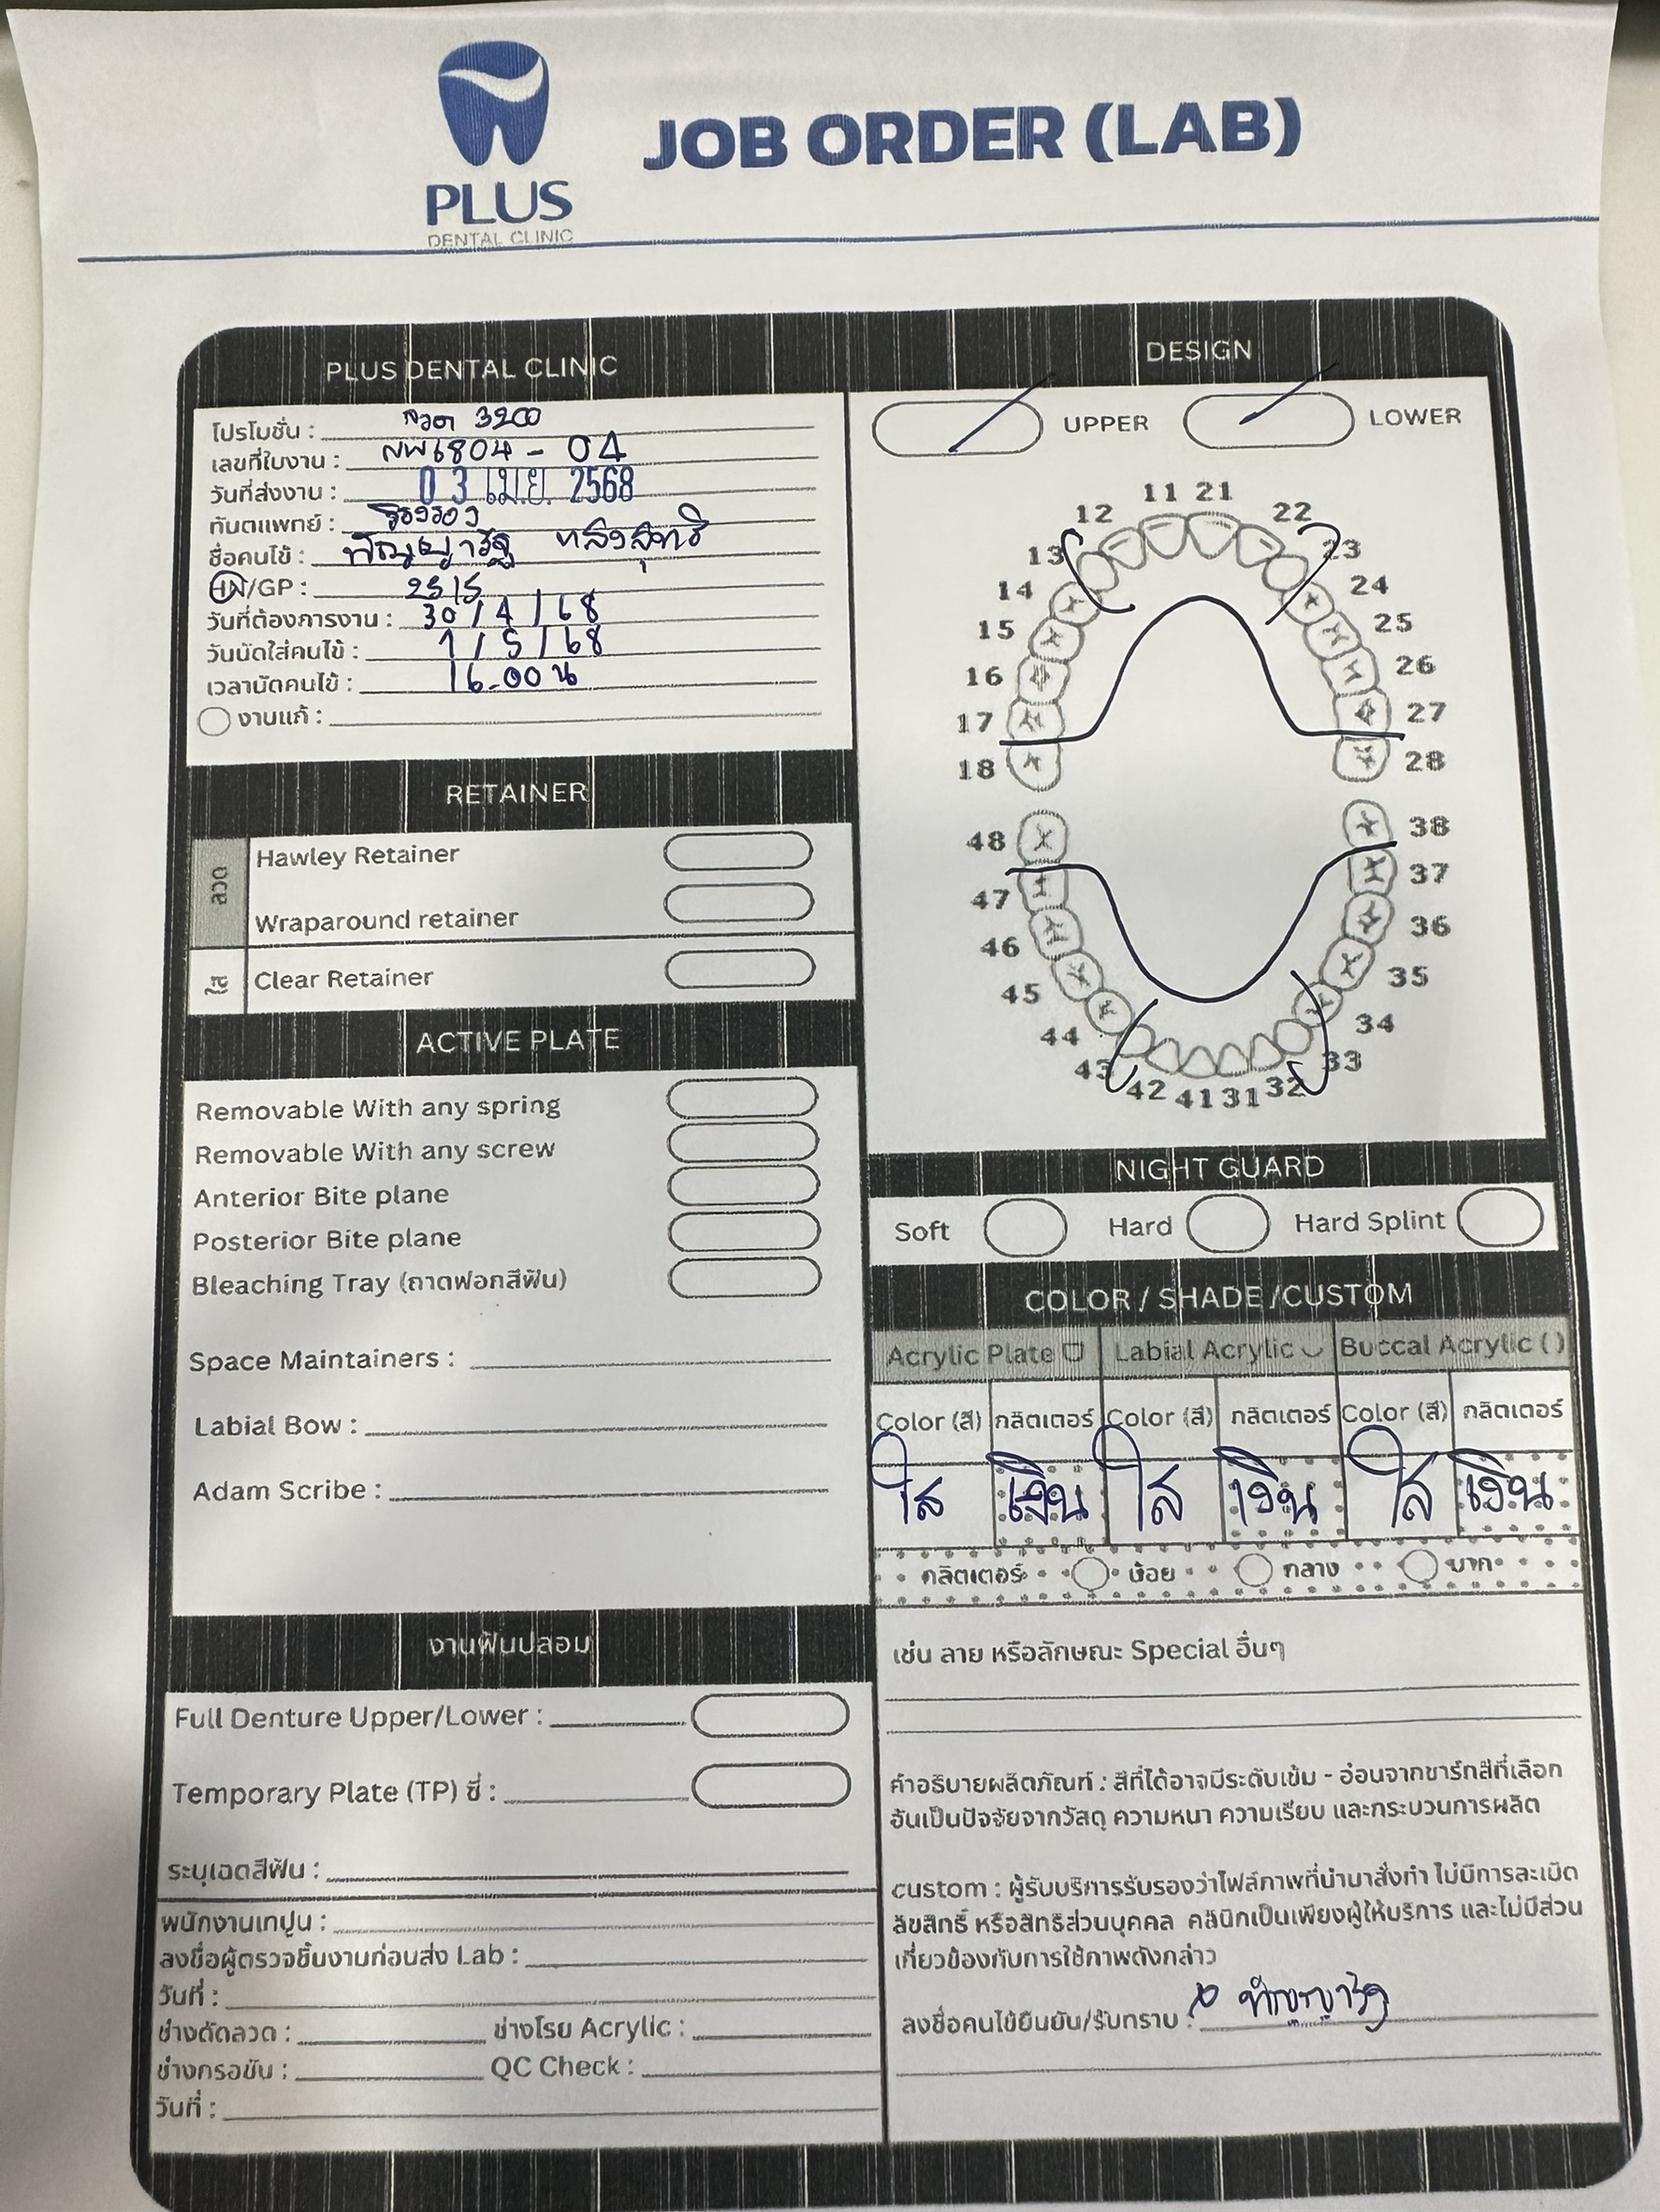 PLUS
DENTAL CLINIC
JOB ORDER (LAB)
PLUS DENTAL CLINIC
โปรโมชั่น : ลวด 3200
เลขที่ใบงาน : นพ6804 - 04
วันที่ส่งงาน : 03 เม.ย. 2568
ทันตแพทย์ :
ชื่อคนไข้ :
HN/GP : 2515
วันที่ต้องการงาน : 30 / 4 / 68
วันนัดใส่คนไข้ : 1 / 5 / 68
เวลานัดคนไข้ : 16.00 น
งานแก้ :
RETAINER
ลวด
Hawley Retainer
Wraparound retainer
ใส
Clear Retainer
ACTIVE PLATE
Removable With any spring
Removable With any screw
Anterior Bite plane
Posterior Bite plane
Bleaching Tray (ถาดฟอกสีฟัน)
Space Maintainers :
Labial Bow :
Adam Scribe :
งานฟันปลอม
Full Denture Upper/Lower :
Temporary Plate (TP) ซี่ :
ระบุเฉดสีฟัน :
พนักงานเทปูน :
ลงชื่อผู้ตรวจชิ้นงานก่อนส่ง Lab :
วันที่ :
ช่างดัดลวด : ช่างโรย Acrylic :
ช่างกรอขัน : QC Check :
วันที่ :
DESIGN
UPPER LOWER
11 21
12 22
13 23
14 24
15 25
16 26
17 27
18 28
48 38
47 37
46 36
45 35
44 34
43 33
42 41 31 32
NIGHT GUARD
Soft Hard Hard Splint
COLOR / SHADE /CUSTOM
Acrylic Plate Labial Acrylic Buccal Acrylic ( )
Color (สี) กลิตเตอร์ Color (สี) กลิตเตอร์ Color (สี) กลิตเตอร์
ใส เงิน ใส เงิน ใส เงิน
กลิตเตอร์ น้อย กลาง มาก
เช่น ลาย หรือลักษณะ Special อื่นๆ
คำอธิบายผลิตภัณฑ์ : สีที่ได้อาจมีระดับเข้ม - อ่อนจากชาร์ทสีที่เลือก
อันเป็นปัจจัยจากวัสดุ ความหนา ความเรียบ และกระบวนการผลิต
custom : ผู้รับบริการรับรองว่าไฟล์ภาพที่นำมาสั่งทำ ไม่มีการละเมิด
ลิขสิทธิ์ หรือสิทธิส่วนบุคคล คลินิกเป็นเพียงผู้ให้บริการ และไม่มีส่วน
เกี่ยวข้องกับการใช้ภาพดังกล่าว
ลงชื่อคนไข้ยืนยัน/รับทราบ :